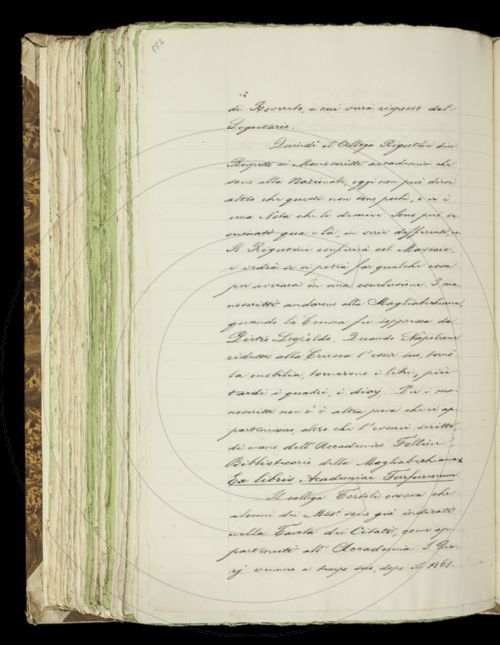 552
di Rovereto, a cui sarà risposto dal
Segretario.
Quindi il Collega Rigutini
Rispetto ai Manoscritti accademici che
sono alla Nazionale, oggi non può dirsi
altro che questi non sono pochi, e vi è
una Nota che lo dimica. Sono poi se
minati qua e là, in serie differente.
Il Rigutini conferirà col Massaio,
e vedrà se si potrà far qualche cosa
per avviarsi in una conclusione. I ma
noscritti andarono alla Magliabechiana,
quando la Crusca fu soppressa da
Pietro Leopoldo. Quando Napoleone
ridette alla Crusca l'esser suo, tornò
la mobilia, tornarono i libri, più
tardi i quadri, i diarj. Per i ma
noscritti non c'è altra prova che ci ap
partenessero, altro che l'esservi scritto,
di mano dell'Accademico Follini
Bibliotecario della Magliabechiana,
Ex libris Academiae Furfurorum.
Il collega Tortoli osserva che
alcuni dei Mss. son già indicati
nella Tavola dei Citati, come ap
partenenti all'Accademia. I Dia
rj vennero a tempo suo, dopo il 1861.